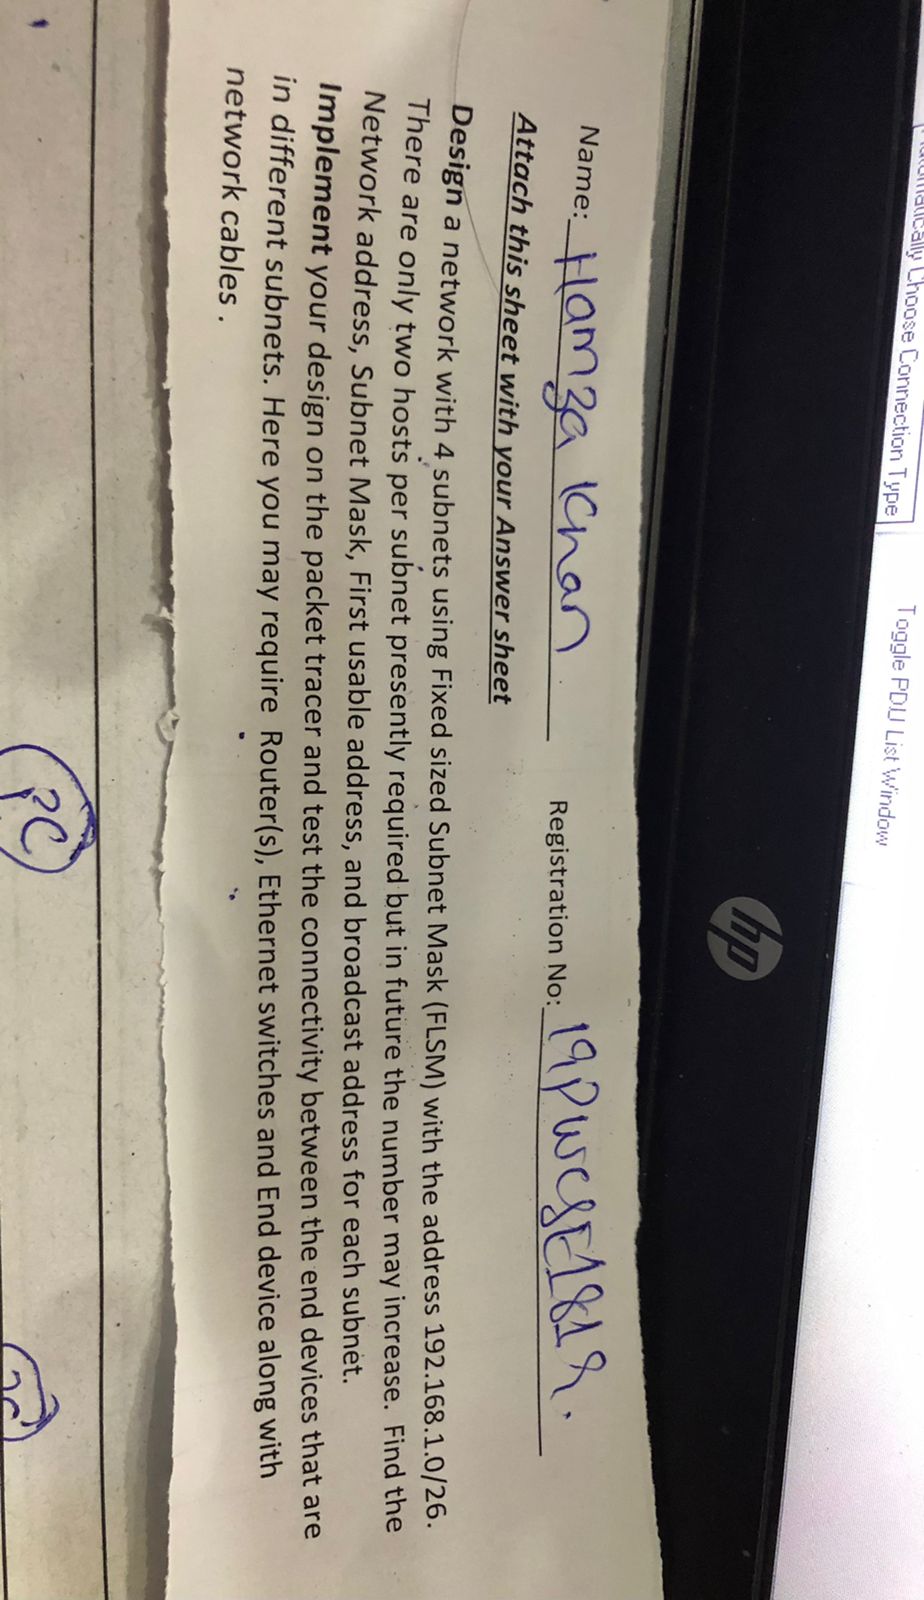 Automatically Choose Connection Type
Toggle PDU List Window
hp
Name: Hamza Khan
Registration No: 19PWCSE1818.
Attach this sheet with your Answer sheet
Design a network with 4 subnets using Fixed sized Subnet Mask (FLSM) with the address 192.168.1.0/26.
There are only two hosts per subnet presently required but in future the number may increase. Find the
Network address, Subnet Mask, First usable address, and broadcast address for each subnet.
Implement your design on the packet tracer and test the connectivity between the end devices that are
in different subnets. Here you may require Router(s), Ethernet switches and End device along with
network cables .
PC